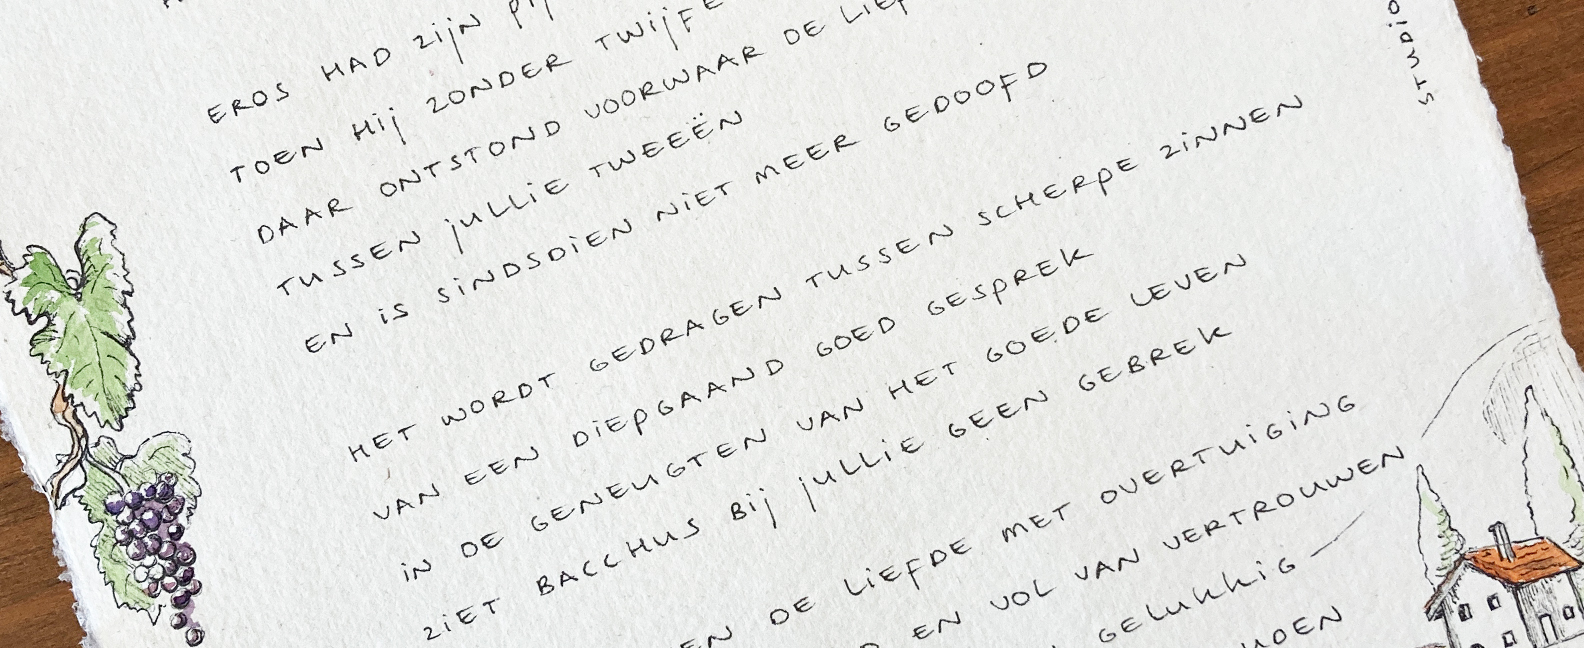 EROS HAD ZIJN
TOEN HIJ ZONDER
DAAR ONTSTOND VOORWAAR DE
TUSSEN JULLIE TWEEËN
EN IS SINDSDIEN NIET MEER GEDOOFD
HET WORDT GEDRAGEN TUSSEN SCHERPE ZINNEN
VAN EEN DIEPGAAND GOED GESPREK
IN DE GENEUGTEN VAN HET GOEDE LEVEN
ZIET BACCHUS BIJ JULLIE GEEN GEBREK
DE LIEFDE MET OVERTUIGING
EN VOL VAN VERTROUWEN
GELUKKIG
STUDIO